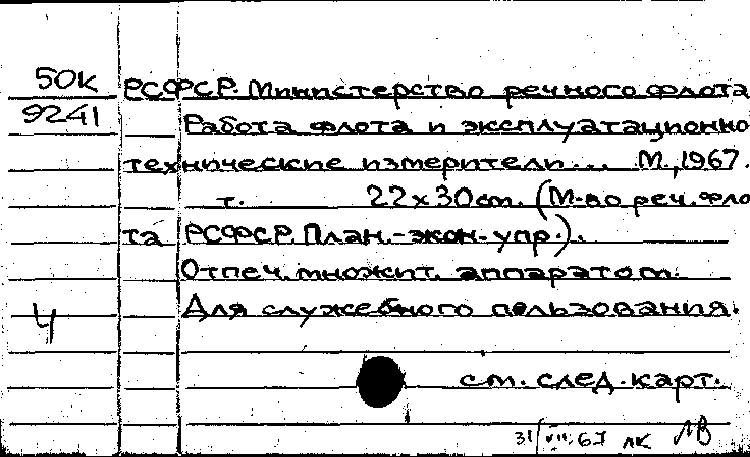 50к РСФСР. Министерство речного флота
9241 Работа флота и эксплуатационно
технические измерители... М., 1967.
т. 22х30см. (М-во реч. фло
та РСФСР. План.-экон. упр.).
Отпеч. множит. аппаратом.
Ч Для служебного пользования.
см. след. карт.
31/VII.67 лк ЛВ